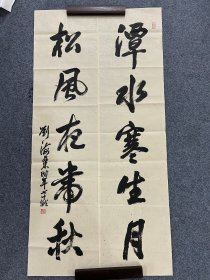 潭水寒生月
松風夜帶秋
劉海粟